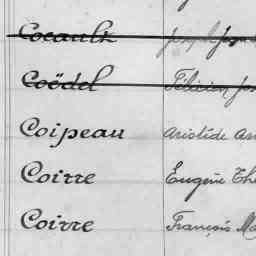 Cocault Joseph
Coëdel Félicien, Jos
Coipeau Aristide
Coirre Eugène The
Coirre François Ma